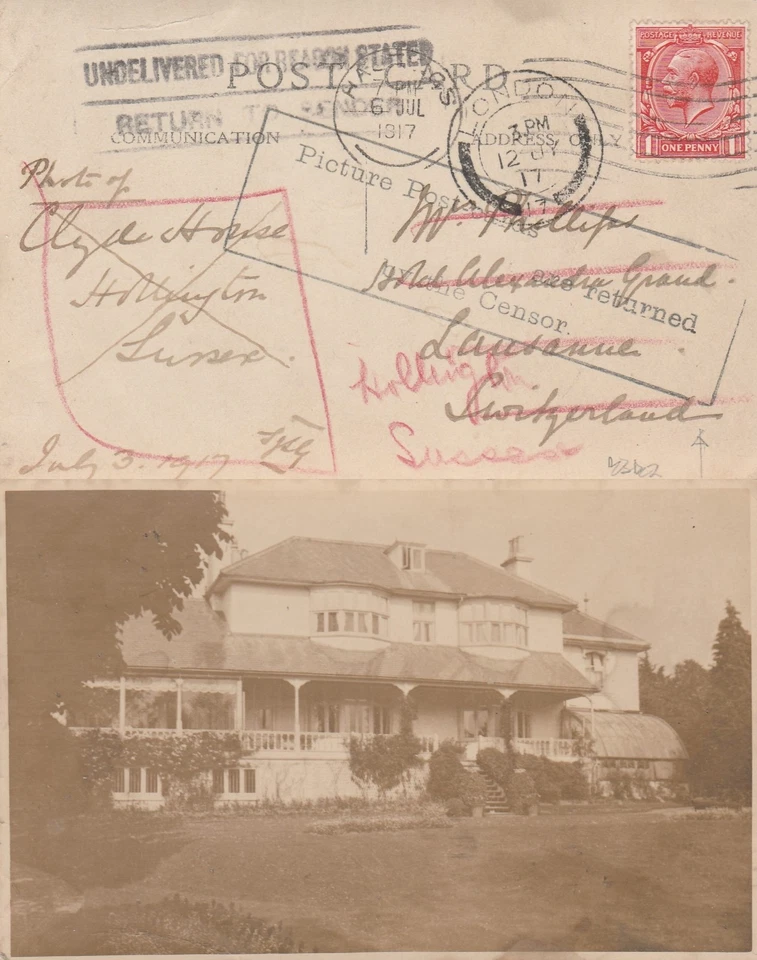 UNDELIVERED FOR REASON STATED
RETURN TO SENDER
POST CARD
COMMUNICATION
ADDRESS ONLY
HASTINGS
7 PM
6 JUL
1917
LONDON
3 PM
12 JY
17
POSTAGE REVENUE
1 ONE PENNY 1
Picture Postcards
are returned
by the Censor.
Photo of
Clyde House
Hollington
Sussex.
July 3. 1917
Mr. Phillips
Hotel Alexandra Grand.
Lausanne.
Switzerland
Hollington
Sussex